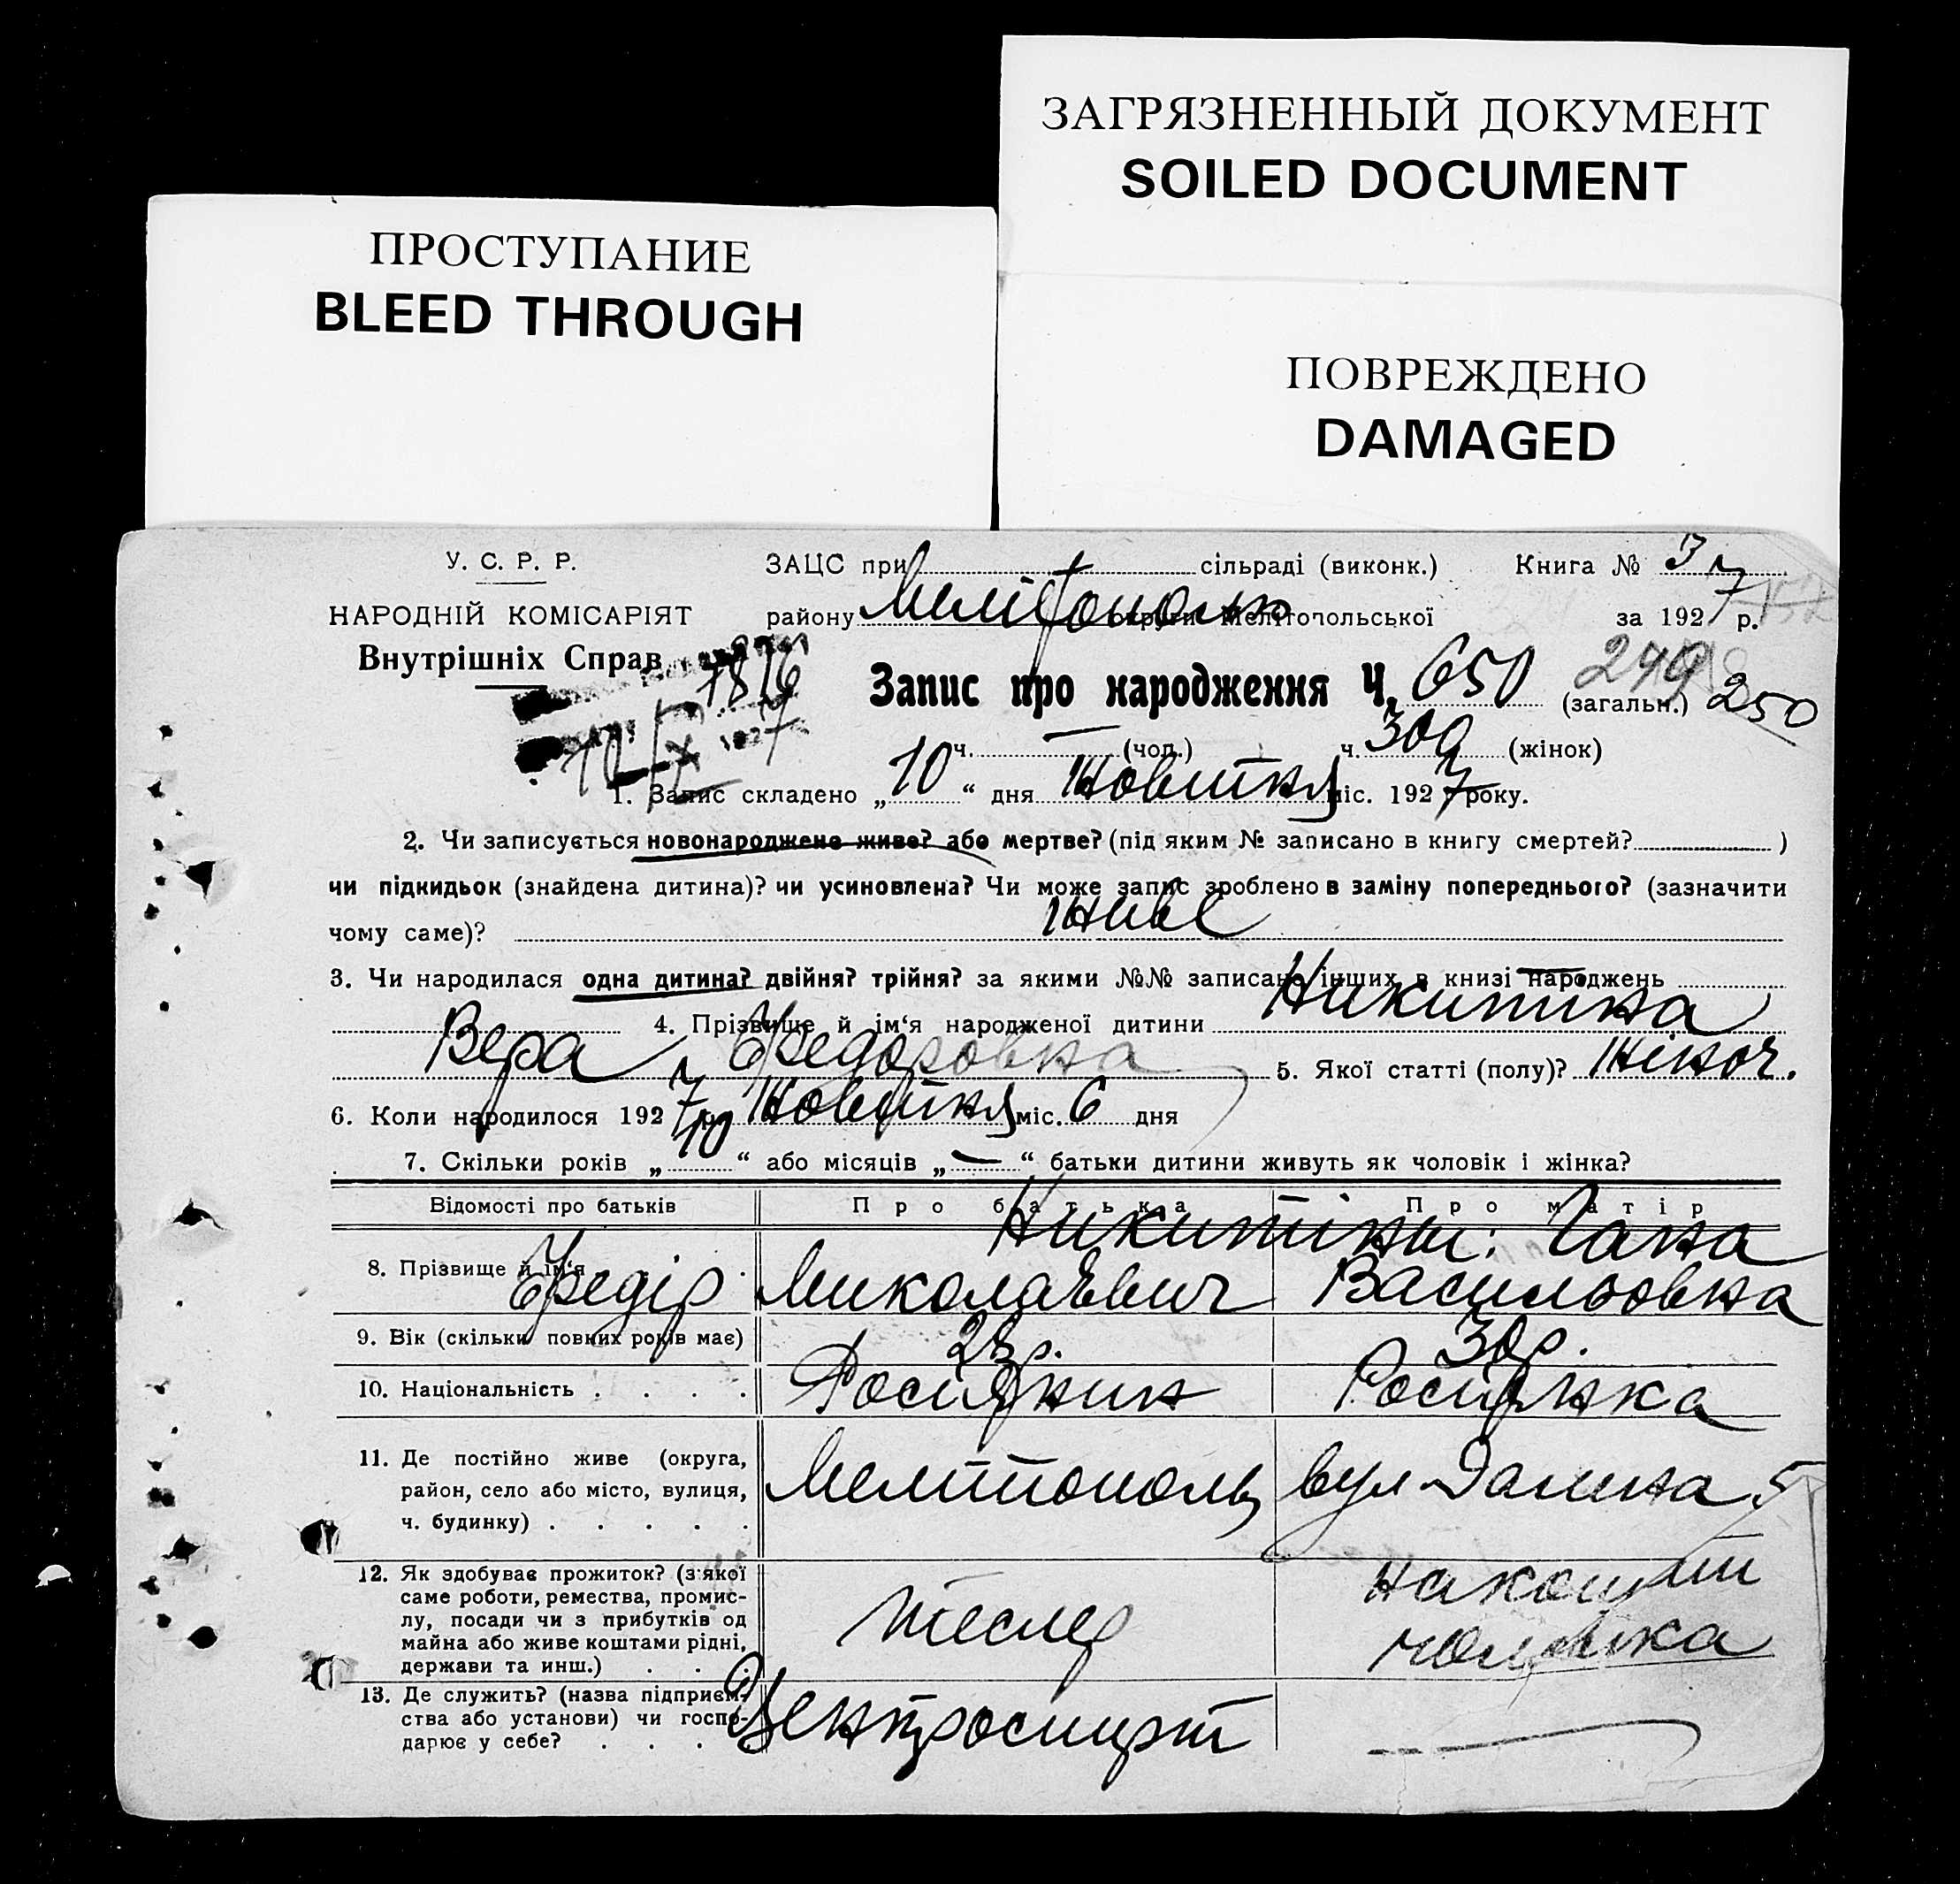 ЗАГРЯЗНЕННЫЙ ДОКУМЕНТ
SOILED DOCUMENT
ПРОСТУПАНИЕ
BLEED THROUGH
ПОВРЕЖДЕНО
DAMAGED
У. С. Р. Р.
НАРОДНІЙ КОМІСАРІЯТ
Внутрішніх Справ
ЗАЦС при сільраді (виконк.) Книга № 3
району Мелітополь округи Мелітопольської за 1927 р.
Запис про народження Ч. 650 (загальн.) 249 250
ч. — (чол.) ч. 309 (жінок)
1. Запис складено „10“ дня Жовтня міс. 1927 року.
2. Чи записується новонароджене живе? або мертве? (під яким № записано в книгу смертей? )
чи підкидьок (знайдена дитина)? чи усиновлена? Чи може запис зроблено в заміну попереднього? (зазначити
чому саме)? живе
3. Чи народилася одна дитина? двійня? трійня? за якими №№ записано інших в книзі народжень —
4. Прізвище й ім‘я народженої дитини Никитина
Вера Федоровна 5. Якої статті (полу)? Жіноч.
6. Коли народилося 1927 р. Жовтня міс. 6 дня
7. Скільки років „10“ або місяців „—“ батьки дитини живуть як чоловік і жінка?
Відомості про батьків Про батька Про матір
8. Прізвище й ім‘я Никитіни: Ганна
Федір Миколаєвич Васильовна
9. Вік (скільки повних років має) 28 р. 30 р.
10. Національність . . . . Росіянин Росіянка
11. Де постійно живе (округа,
район, село або місто, вулиця,
ч. будинку) . . . . .
Мелітополь вул 5
12. Як здобуває прожиток? (з якої
саме роботи, ремества, промис-
лу, посади чи з прибутків од
майна або живе коштами рідні,
держави та инш.) . . .
Тесляр на кошти
чоловіка
13. Де служить? (назва підприєм-
ства або установи) чи госпо-
дарює у себе? . . . .
Центроспирт —